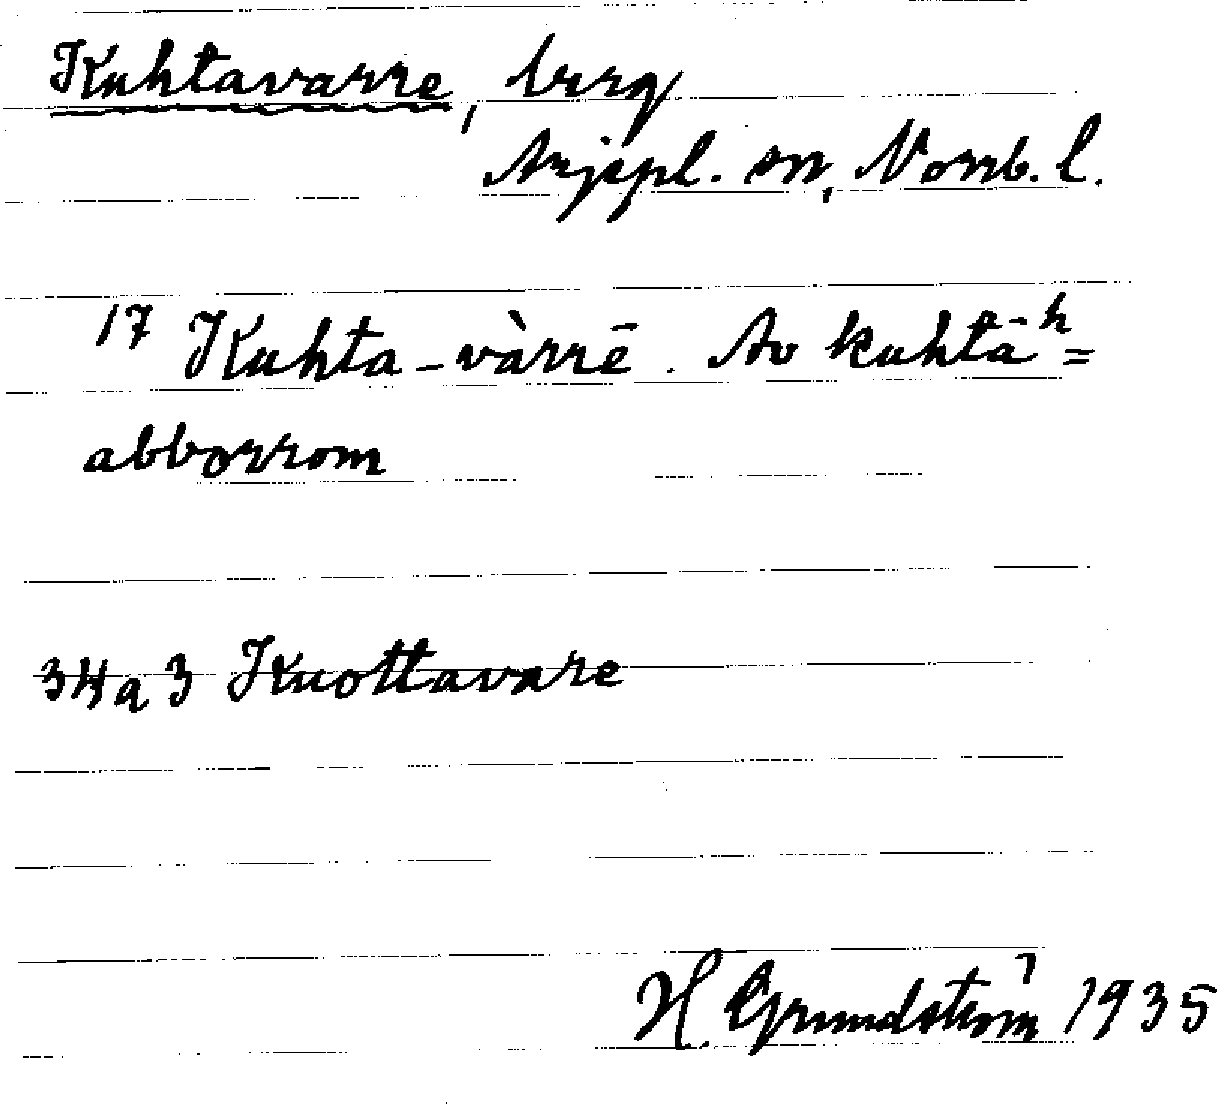 Kuhtavarre, berg
Arjepl. sn, Norrb. l.
17 Kuhta-vàrrē. Av kuhtā-h =
abborrom
34a3 Kuottavare
H. Grundström 1935